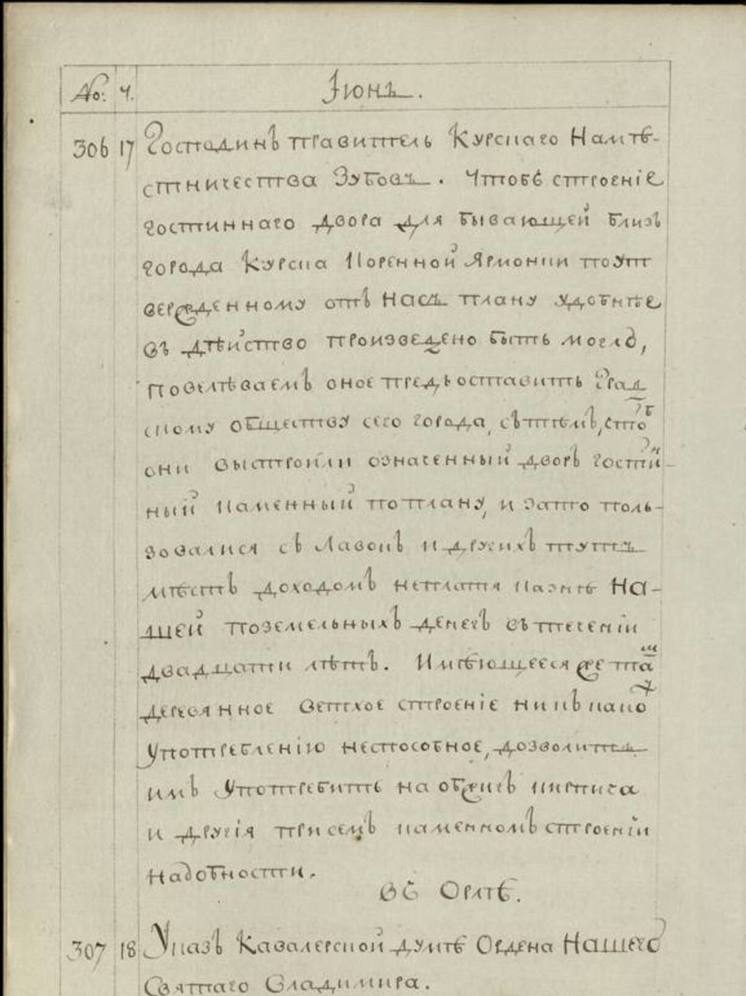 No: Ч. Іюнь.
306 17 Господинъ правитель Курскаго Намѣ-
стничества Зубовъ. Чтобъ строеніе
гостиннаго двора для бывающей близъ
города Курска Коренной Ярмонки поут
вержденному отъ насъ плану удобнѣе
въ дѣйство произведено быть могло,
повелѣваемъ оное предъоставить Град
скому обществу сего города, съ тѣмъ, чтоб
они выстроили означенный дворъ гостин-
ный каменный поплану, и зато поль-
зовалися съ лавокъ и другихъ тутъ
мѣстъ доходомъ неплатя казнѣ На-
шей поземельныхъ денегъ въ теченіи
двадцати лѣтъ. Имѣющееся же там
деревянное ветхое строеніе никъ како
употребленію неспособное, дозволить
имъ употребить на обжигъ кирпича
и другія присемъ каменномъ строеніи
надобности.
Въ Орлѣ.
307 18 Указъ Кавалерской думѣ Ордена Нашего
Святаго Владимира.